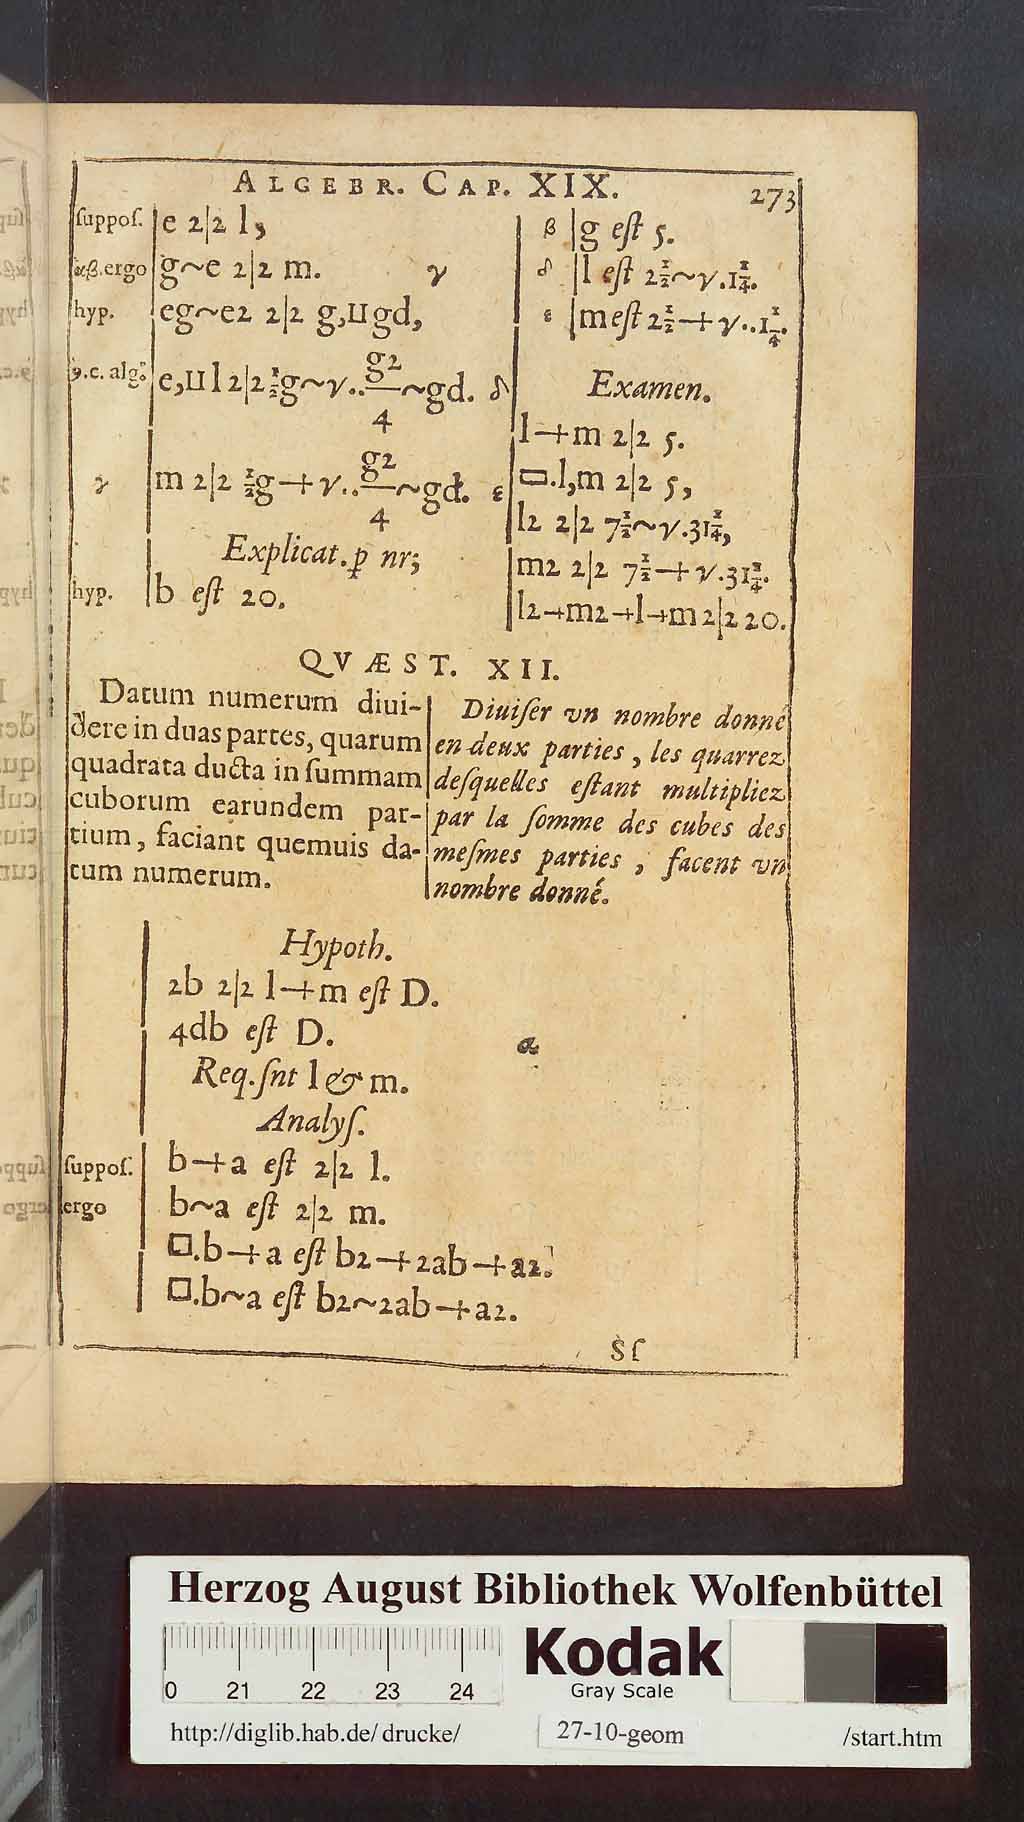 ALGEBR. CAP. XIX. 273
ſuppoſ. e 2|2 l,
αβ. ergo g~e 2|2 m. γ
hyp. eg~e2 2|2 g,IIgd,
e,II l 2|2 ½g~√..g2/4~gd. δ
γ m 2|2 ½g-+√..g2/4~gd. ε
Explicat. p nr;
hyp. b eſt 20.
β g eſt 5.
δ l eſt 2½~√.1¼.
ε m eſt 2½-+√..1¼.
Examen.
l-+m 2|2 5.
▭.l,m 2|2 5,
l2 2|2 7½~√.31¼,
m2 2|2 7½-+√.31¼.
l2-+m2-+l-+m 2|2 20.
QVÆST. XII.
Datum numerum diui-
dere in duas partes, quarum
quadrata ducta in ſummam
cuborum earundem par-
tium, faciant quemuis da-
tum numerum.
Diuiſer vn nombre donné
en deux parties, les quarrez
deſquelles eſtant multipliez
par la ſomme des cubes des
meſmes parties, facent vn
nombre donné.
Hypoth.
2b 2|2 l-+m eſt D.
4db eſt D. α
Req. ſnt l & m.
Analyſ.
ſuppoſ. b-+a eſt 2|2 l.
ergo b~a eſt 2|2 m.
□.b-+a eſt b2-+2ab-+a2.
□.b~a eſt b2~2ab-+a2.
Sſ
Herzog August Bibliothek Wolfenbüttel
Kodak
Gray Scale
0 21 22 23 24
http://diglib.hab.de/drucke/ 27-10-geom /start.htm